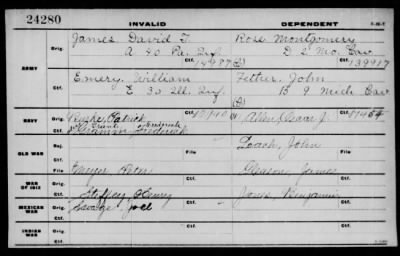 24280
INVALID DEPENDENT
ARMY
Orig. James, David T. Rose Montgomery
A 40 Pa. Inf. D 2 Mo. Cav
Ctf. 14987 Ctf. 139917
Orig. Emery, William Fetter, John
E 30 Ill. Inf. B 9 Mich Cav
Ctf. Ctf.
NAVY
Orig. Patrick Ctf. Orig. Allen, Oscar J. Ctf.
Frederick
OLD WAR
Orig. Loach, John
File File
Meyer, Peter Gleason, James
WAR OF 1812
Orig. Steffey, Henry Jones, Benjamin
Ctf.
MEXICAN WAR
Orig. Savage Joel
Ctf.
INDIAN WAR
Orig.
Ctf.